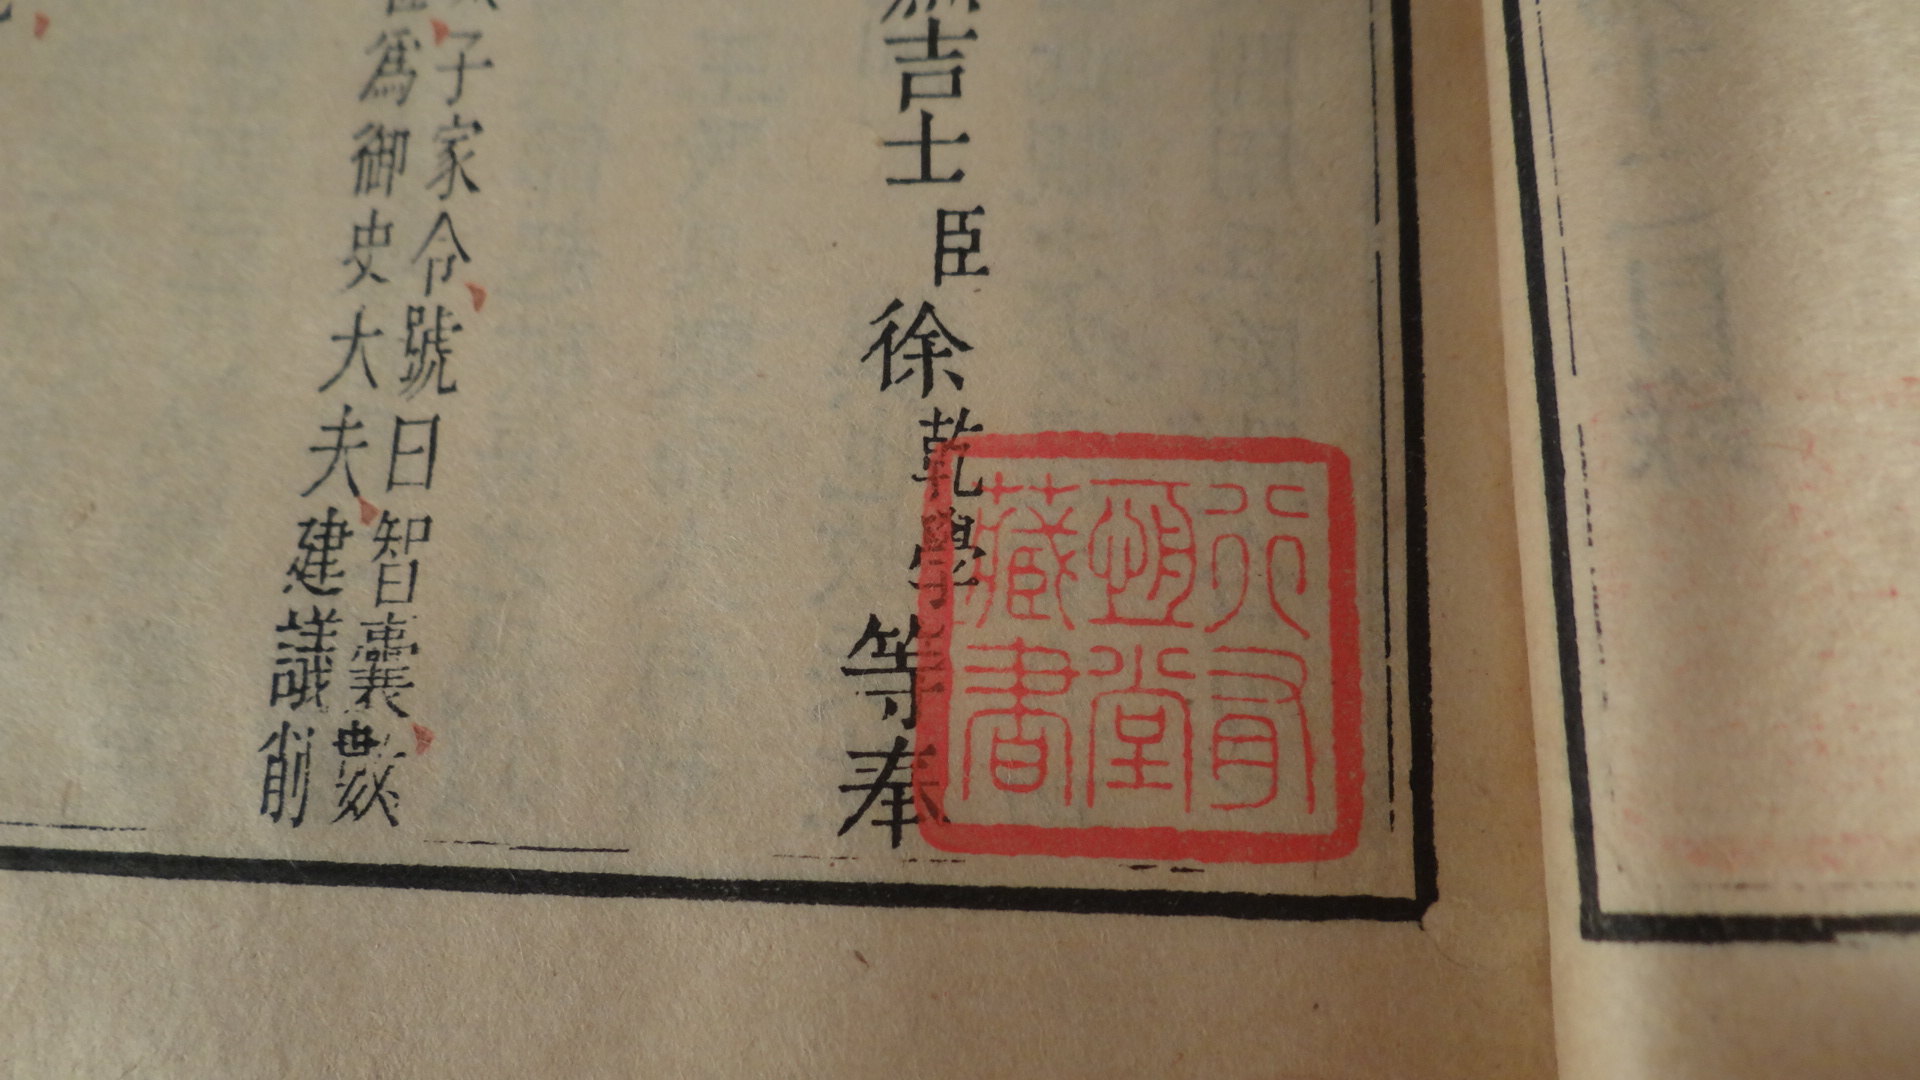 行有
恆堂
藏書
吉士臣徐乾學等奉
子家令號曰智囊數
爲御史大夫建議削